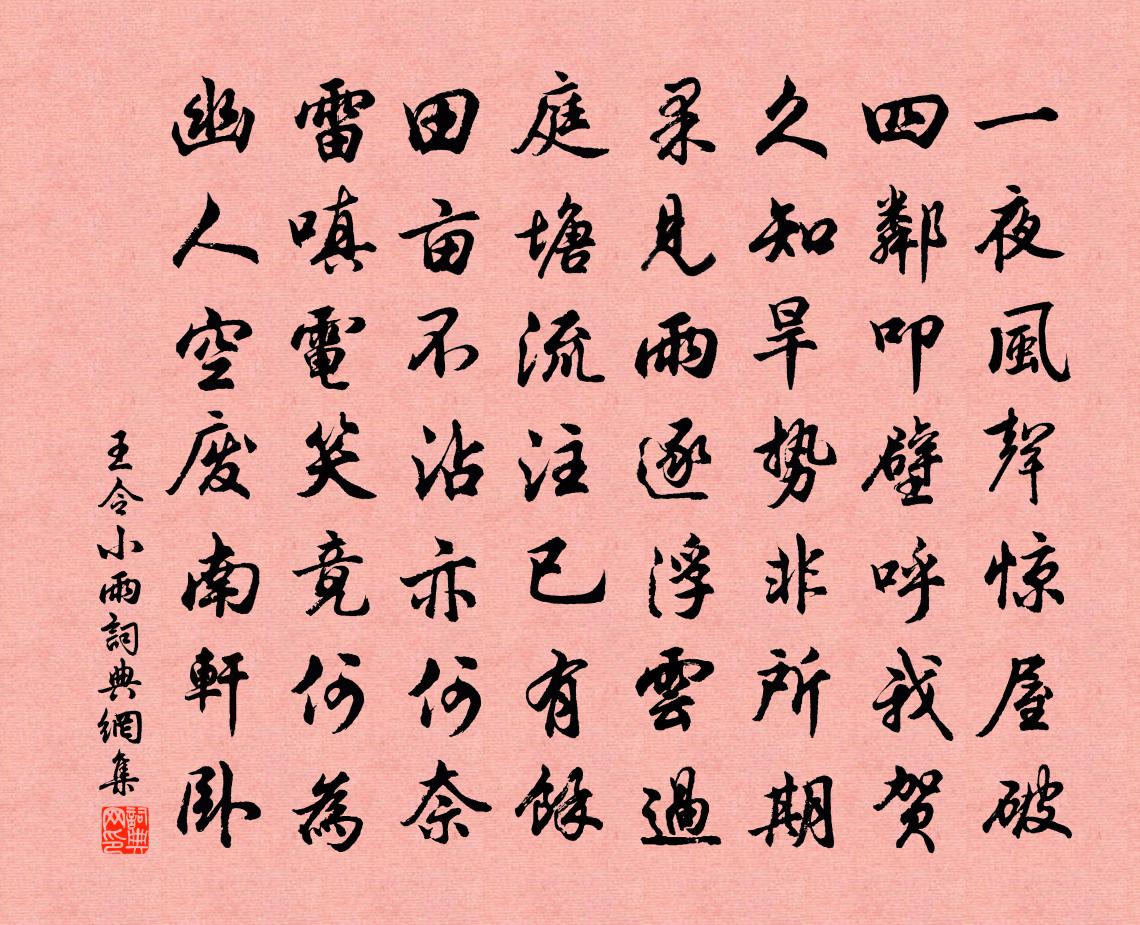 一夜風聲惊屋破
四鄰叩壁呼我贺
久知旱势非所期
果見雨逐浮雲過
庭塘流注已有餘
田亩不沾亦何奈
雷嗔電笑竟何為
幽人空废南軒卧
王令小雨詞典網集
詞典网印